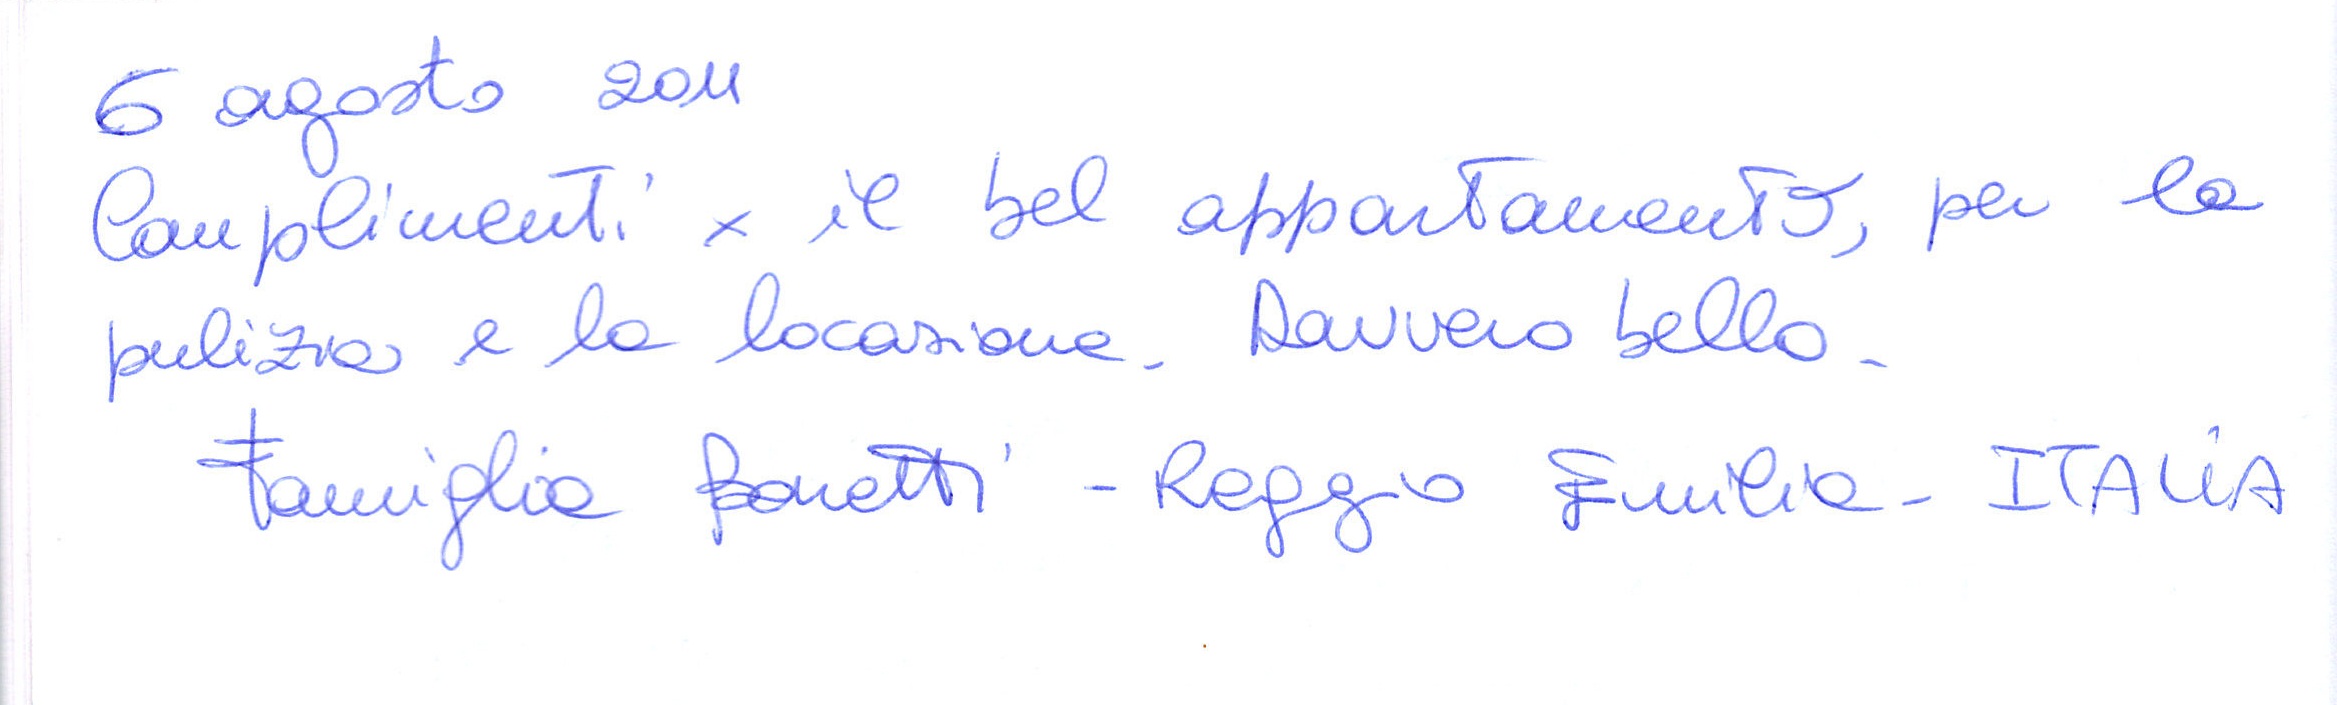 6 agosto 2011
Complimenti x il bel appartamento, per la
pulizia e la locazione. Davvero bello.
Famiglia Bonetti - Reggio Emilia - ITALIA